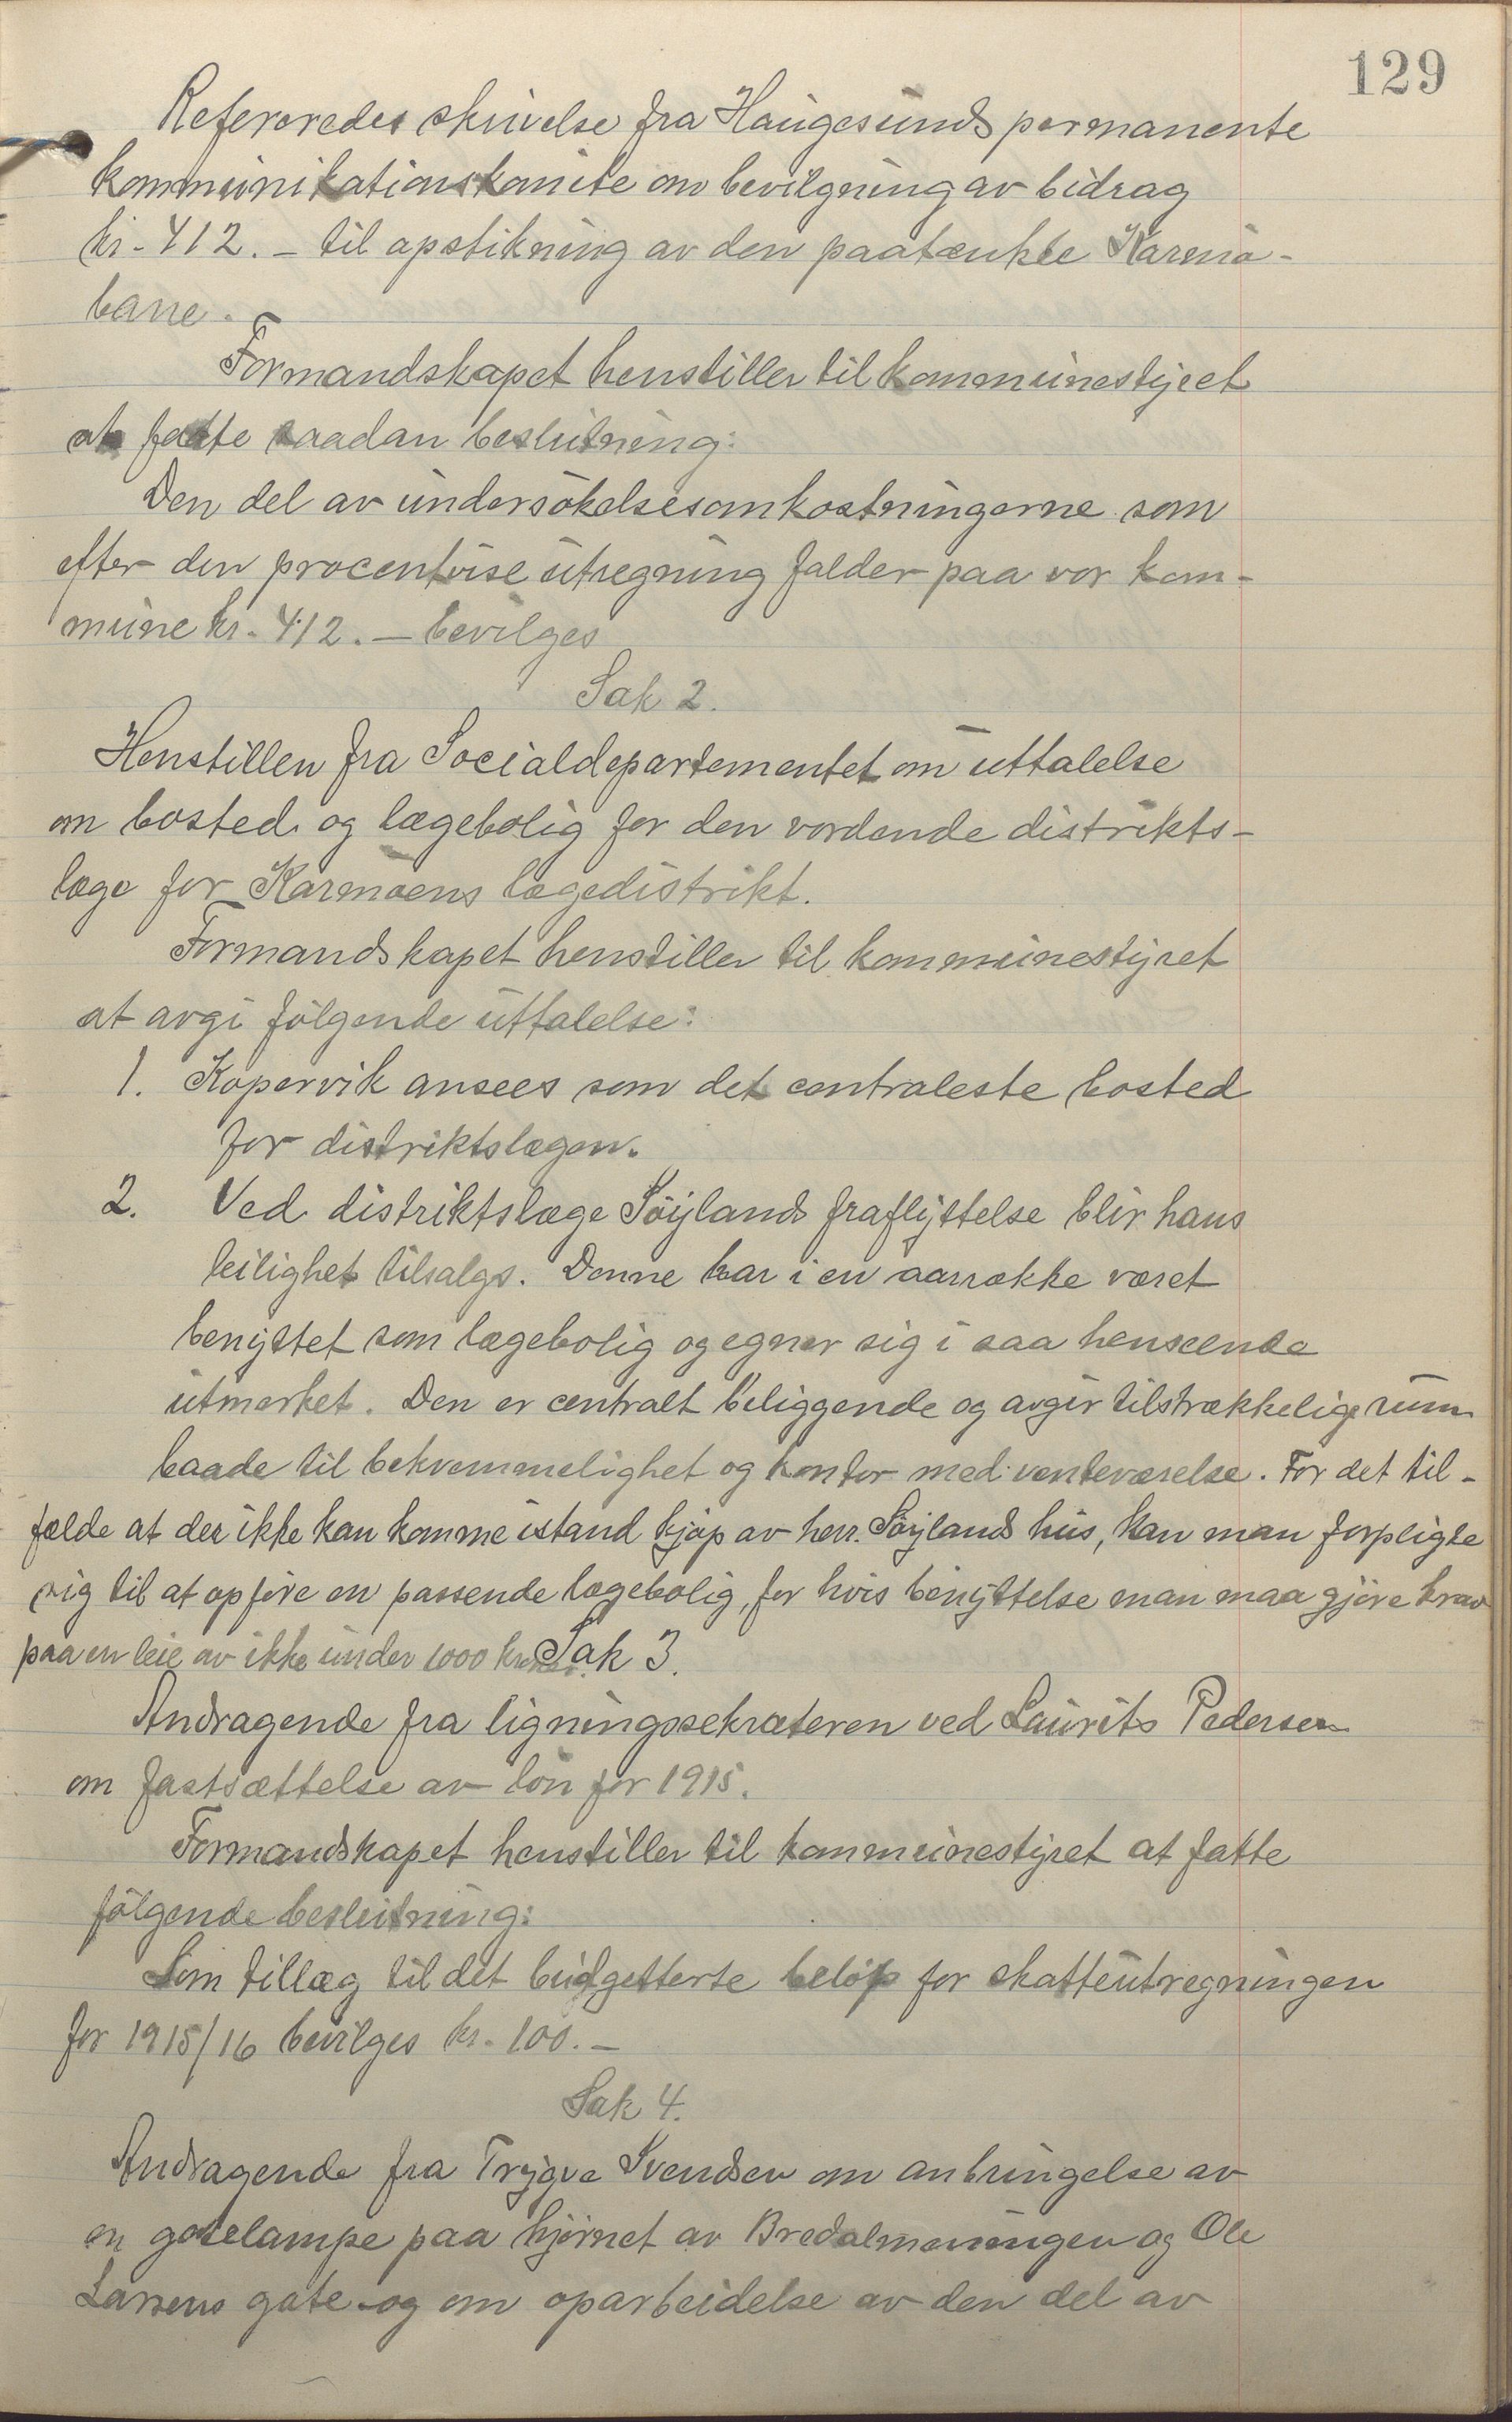 129
Refereredes skrivelse fra Haugesunds permanente
kommunikationskomite om bevilgning av bidrag
kr. 412.- til opstikning av den paatænkte Karmö-
bane.
Formandskapet henstiller til kommunestyret
at fatte saadan beslutning:
Den del av undersökelsesomkostningerne som
efter den procentvise utregning falder paa vor kom-
mune kr. 412.- bevilges
Sak 2.
Henstillen fra Socialdepartementet om uttalelse
om bosted og lægebolig for den vordende distrikts-
læge for Karmöens lægedistrikt.
Formandskapet henstiller til kommunestyret
at avgi følgende uttalelse:
1. Kopervik ansees som det centraleste bosted
for distriktslægen.
2. Ved distriktslæge Söylands fraflyttelse blir hans
leilighet tilsalgs. Denne har i en aarrække været
benyttet som lægebolig og egner sig i saa henseende
utmerket. Den er centralt beliggende og avgir tilstrækkelige rum
baade til bekvemmelighet og kontor med venteværelse. For det til-
fælde at der ikke kan komme istand kjöp av herr. Söylands hus, kan man forpligte
sig til at opføre en passende lægebolig, for hvis benyttelse man maa gjøre krav
paa en leie av ikke under 1000 kroner. Sak 3.
Andragende fra ligningssekretæren ved Laurits Pedersen
om fastsættelse av lön for 1915.
Formandskapet henstiller til kommunestyret at fatte
følgende beslutning:
Som tillæg til det budgetterte belöp for skatteutregningen
for 1915/16 bevilges kr. 100.-
Sak 4.
Andragende fra Trygve Svendsen om anbringelse av
en gatelampe paa hjørnet av Bredalmeningen og Ole
Larsens gate og om oparbeidelse av den del av